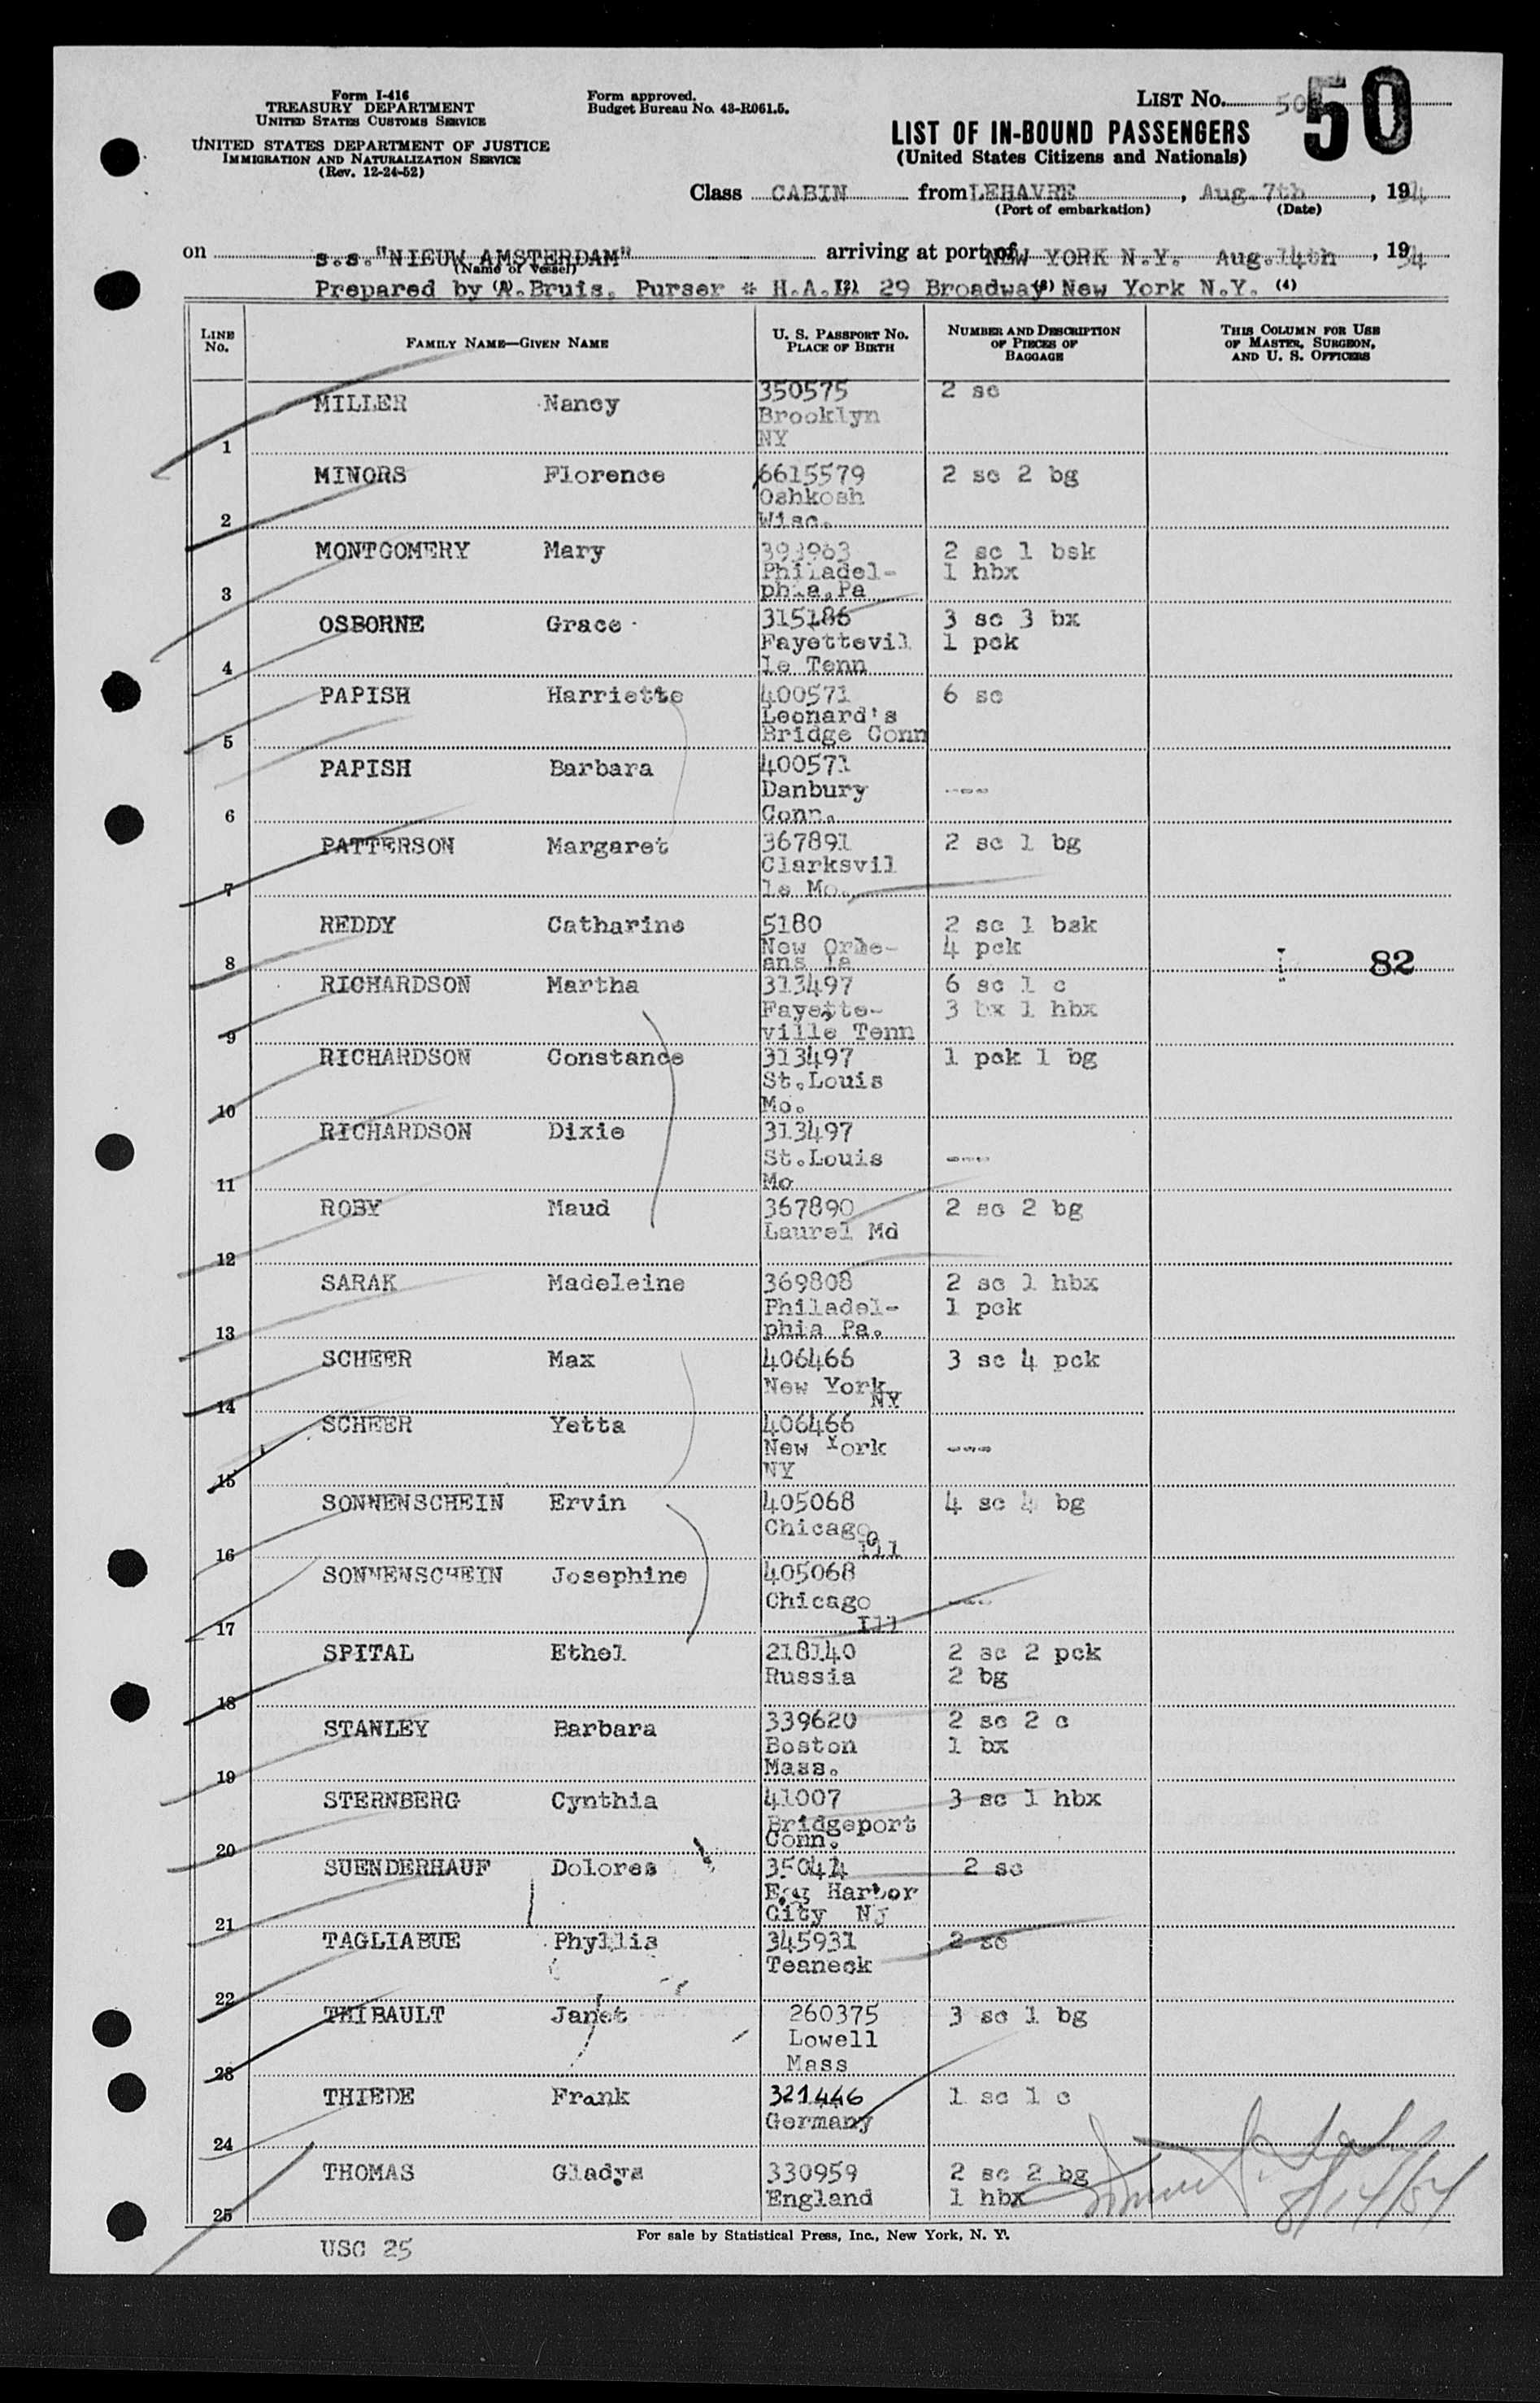 Form I-416
TREASURY DEPARTMENT
UNITED STATES CUSTOMS SERVICE
UNITED STATES DEPARTMENT OF JUSTICE
IMMIGRATION AND NATURALIZATION SERVICE
(Rev. 12-24-52)
Form approved.
Budget Bureau No. 43-R061.5.
LIST NO. 50
LIST OF IN-BOUND PASSENGERS
(United States Citizens and Nationals)
Class CABIN from LEHAVRE, Aug. 7th, 1954
(Port of embarkation) (Date)
on s.s."NIEUW AMSTERDAM" arriving at port of NEW YORK N.Y. Aug.14th, 1954
(Name of vessel)
Prepared by W.Bruis, Purser * H.A.L. 29 Broadway New York N.Y. (4)
LINE NO.
FAMILY NAME—GIVEN NAME
U. S. PASSPORT NO. PLACE OF BIRTH
NUMBER AND DESCRIPTION OF PIECES OF BAGGAGE
THIS COLUMN FOR USE OF MASTER, SURGEON, AND U. S. OFFICERS
1 MILLER Nancy 350575 2 sc
Brooklyn
NY
2 MINORS Florence 6615579 2 sc 2 bg
Oshkosh
Wisc.
3 MONTGOMERY Mary 393963 2 sc 1 bsk
Philadel- 1 hbx
phia,Pa
4 OSBORNE Grace 315186 3 sc 3 bx
Fayettevil 1 pck
le Tenn
5 PAPISH Harriette 400571 6 sc
Leonard's
Bridge Conn
6 PAPISH Barbara 400571
Danbury ---
Conn.
7 PATTERSON Margaret 367891 2 sc 1 bg
Clarksvil
le Mo.
8 REDDY Catharine 5180 2 sc 1 bsk
New Orle- 4 pck
ans la 82
9 RICHARDSON Martha 313497 6 sc 1 c
Fayette- 3 bx 1 hbx
ville Tenn
10 RICHARDSON Constance 313497 1 pck 1 bg
St.Louis
Mo.
11 RICHARDSON Dixie 313497
St.Louis ----
Mo
12 ROBY Maud 367890 2 sc 2 bg
Laurel Md
13 SARAK Madeleine 369808 2 sc 1 hbx
Philadel- 1 pck
phia Pa.
14 SCHEER Max 406466 3 sc 4 pck
New York
NY
15 SCHEER Yetta 406466
New York ---
NY
16 SONNENSCHEIN Ervin 405068 4 sc 4 bg
Chicago
Ill
17 SONNENSCHEIN Josephine 405068
Chicago ----
Ill
18 SPITAL Ethel 218140 2 sc 2 pck
Russia 2 bg
19 STANLEY Barbara 339620 2 sc 2 c
Boston 1 bx
Mass.
20 STERNBERG Cynthia 41007 3 sc 1 hbx
Bridgeport
Conn.
21 SUENDERHAUF Dolores 35044 2 sc
Egg Harbor
City NJ
22 TAGLIABUE Phyllis 345931 2 sc
Teaneck
23 THIBAULT Janet 260375 3 sc 1 bg
Lowell
Mass
24 THIEDE Frank 321446 1 sc 1 c
Germany
25 THOMAS Gladys 330959 2 sc 2 bg
England 1 hbx
8/14/54
For sale by Statistical Press, Inc., New York, N. Y.
USC 25